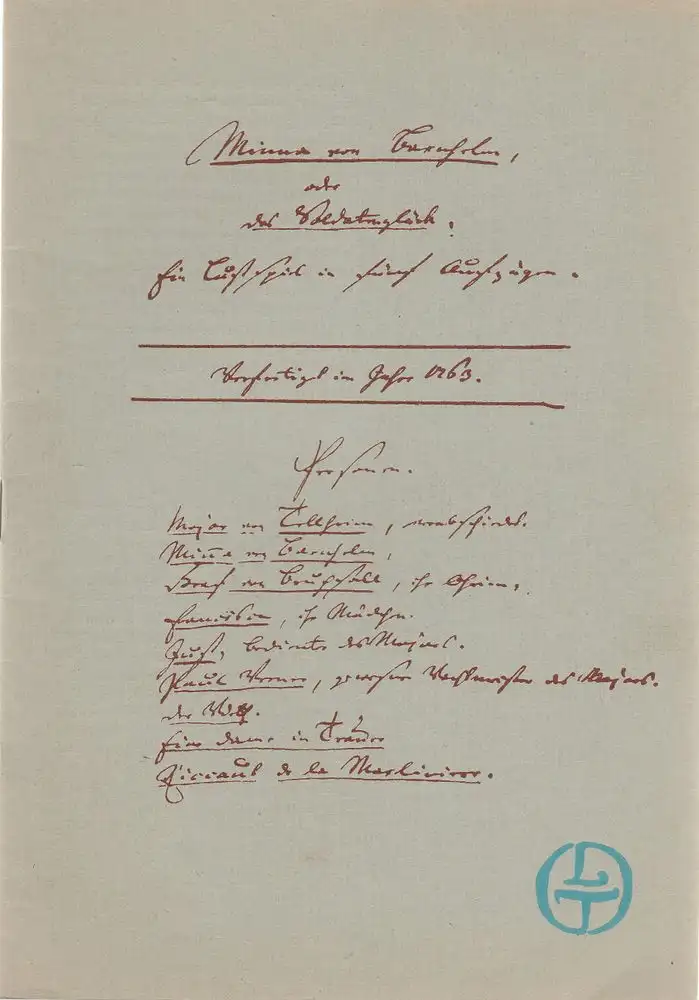 Minna von Barnhelm,
oder
das Soldatenglück.
Ein Lustspiel in fünf Aufzügen.
Verfertiget im Jahre 1763.
Personen.
Major von Tellheim, verabschiedet.
Minna von Barnhelm,
Graf von Bruchsall, ihr Oheim.
Franciska, ihr Mädchen.
Just, Bedienter des Majors.
Paul Werner, gewesener Wachtmeister des Majors.
der Wirth.
Eine Dame in Trauer
Riccaut de la Marliniere.
LT